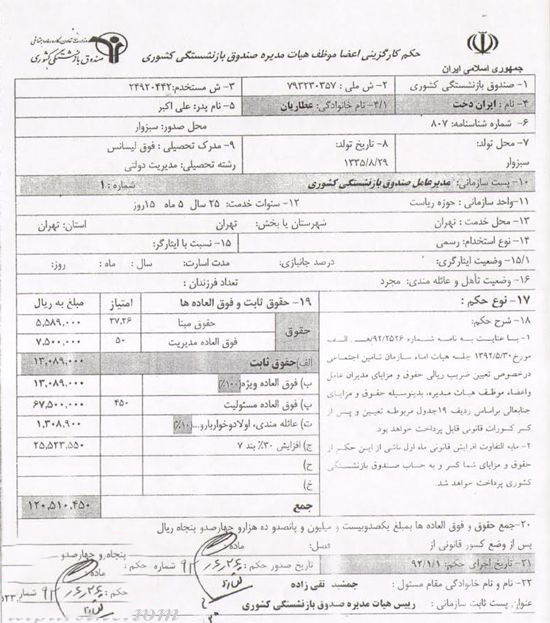 جمهوری اسلامی ایران
حکم کارگزینی اعضا موظف هیات مدیره صندوق بازنشستگی کشوری
صندوق بازنشستگی کشوری
۱- صندوق بازنشستگی کشوری
۲- ش ملی : ۷۹۳۲۳۰۳۵۷
۳- ش مستخدم: ۲۴۹۲۰۴۴۲
۴- نام : ایران دخت
۴/۱- نام خانوادگی: عطاریان
۵- نام پدر: علی اکبر
۶- شماره شناسنامه: ۸۰۷
محل صدور: سبزوار
۷- محل تولد: سبزوار
۸- تاریخ تولد: ۱۳۳۵/۸/۲۹
۹- مدرک تحصیلی : فوق لیسانس
رشته تحصیلی: مدیریت دولتی
۱۰- پست سازمانی: مدیرعامل صندوق بازنشستگی کشوری
شماره : ۱
۱۱- واحد سازمانی : حوزه ریاست
۱۲- سنوات خدمت: ۲۵ سال ۵ ماه ۱۵روز
۱۳- محل خدمت : تهران
شهرستان یا بخش: تهران
استان: تهران
۱۴- نوع استخدام: رسمی
۱۵- نسبت با ایثارگر:
۱۵/۱- وضعیت ایثارگری:
درصد جانبازی:
مدت اسارت: سال : ماه : روز:
۱۶- وضعیت تأهل و عائله مندی: مجرد
تعداد فرزندان :
۱۷- نوع حکم :
۱۸- شرح حکم:
۱- با عنایت به نامه شماره ۹۲/۲۵۲۶/هـ الف
مورخ ۱۳۹۲/۵/۳۰ جلسه هیات امناء سازمان تامین اجتماعی
درخصوص تعیین ضریب ریالی حقوق و مزایای مدیران عامل
واعضاء موظف هیات مدیره، بدینوسیله حقوق و مزایای
جنابعالی براساس ردیف ۱۹جدول مربوطه تعیین و پس از
کسر کسورات قانونی قابل پرداخت خواهد بود.
۲- مابه التفاوت افزایش قانونی ماه اول ناشی از این حکم از
حقوق و مزایای شما کسر و به حساب صندوق بازنشستگی
کشوری پرداخت خواهد شد.
۱۹- حقوق ثابت و فوق العاده ها امتیاز مبلغ به ریال
حقوق
حقوق مبنا ۳۷،۲۶ ۵,۵۸۹,۰۰۰
فوق العاده مدیریت ۵۰ ۷,۵۰۰,۰۰۰
الف) حقوق ثابت ۱۳,۰۸۹,۰۰۰
ب) فوق العاده ویژه (۱۰۰٪) ۱۳,۰۸۹,۰۰۰
پ) فوق العاده مسئولیت ۴۵۰ ۶۷,۵۰۰,۰۰۰
ت) عائله مندی، اولادوخواربارو...(۱۰٪) ۱,۳۰۸,۹۰۰
ج) افزایش ۳۰٪ بند ۷ ۲۵,۵۲۳,۵۵۰
ح)
خ)
جمع ۱۲۰,۵۱۰,۴۵۰
۲۰- جمع حقوق و فوق العاده ها بمبلغ یکصدوبیست و میلیون و پانصدو ده هزارو چهارصدو پنجاه ریال
پس از وضع کسور قانونی از
فصل:
ماده:
پنجاه و چهارصدو
۲۱- تاریخ اجرای حکم: ۹۲/۱/۱
تاریخ صدور حکم :
شماره حکم :
ماده:
۲۲- نام و نام خانوادگی مقام مسئول : جمشید تقی زاده
حکم :
شماره
عنوان پست ثابت سازمانی : رییس هیات مدیره صندوق بازنشستگی کشوری